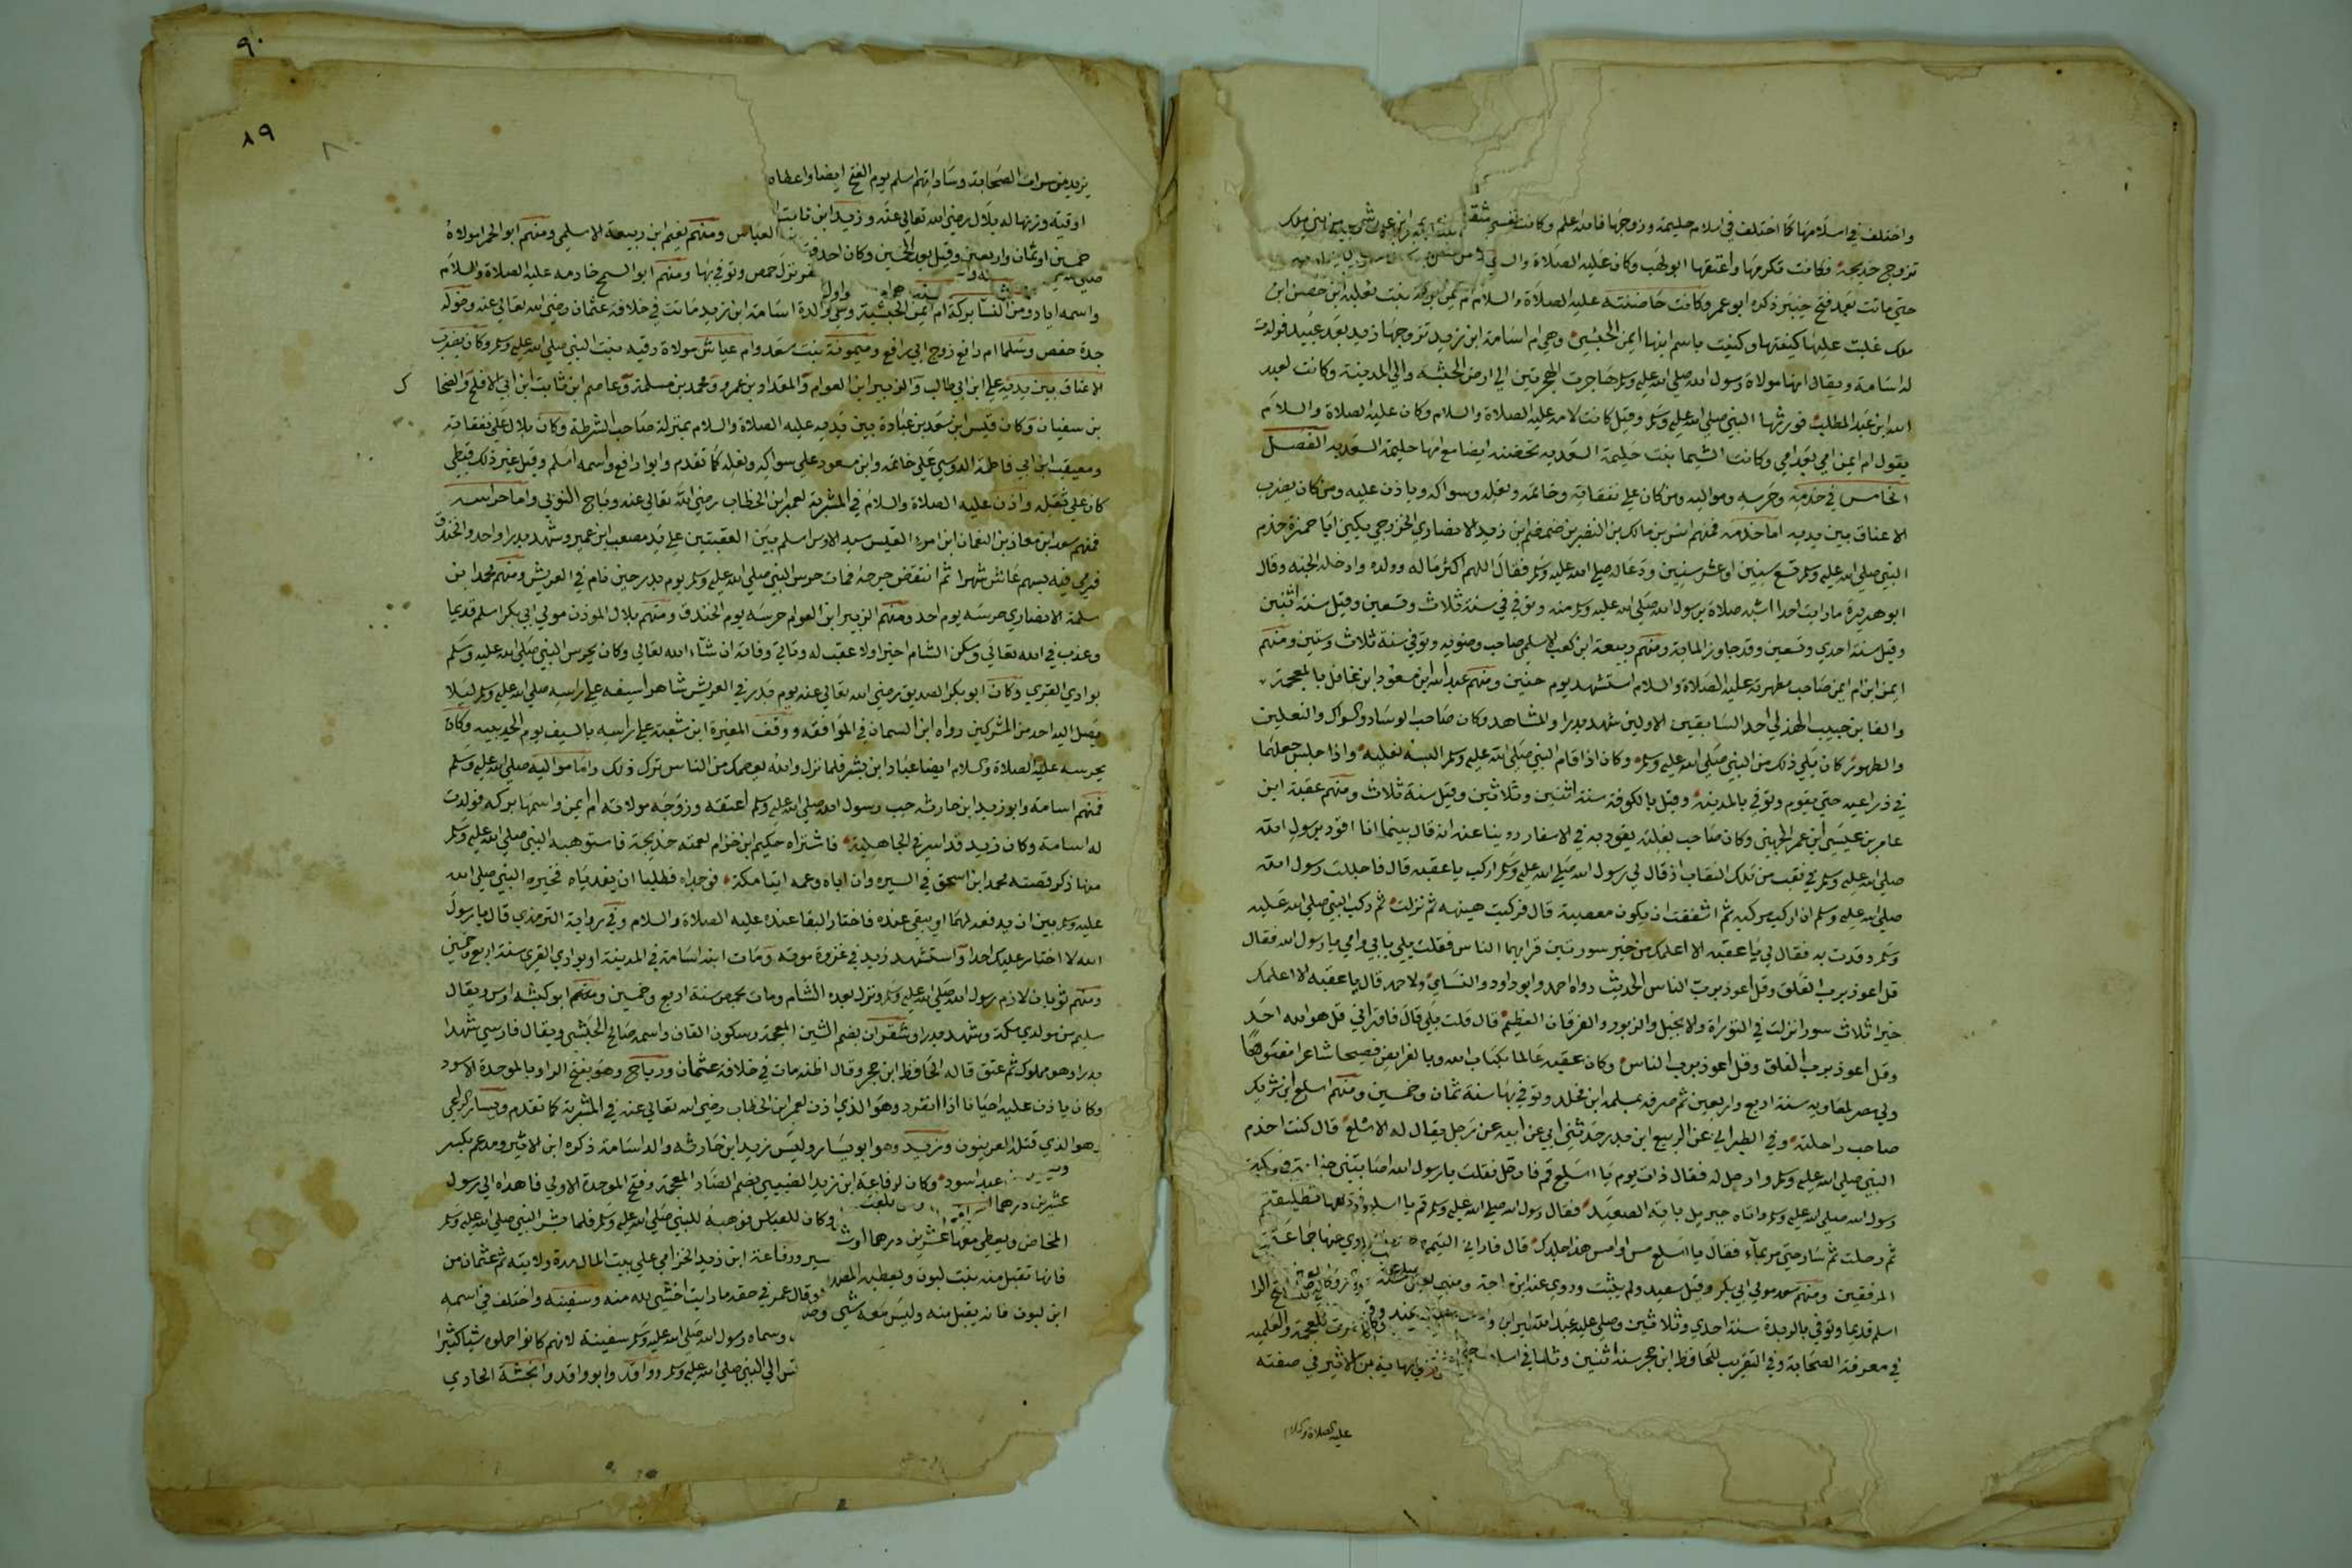 واختلف في اسلامها كما اختلف في اسلام حليمة وزوجها فالله اعلم وكانت
تزوج خديجة فكانت تكرمها واعتقها ابولهب وكان عليه الصلاة والسلام
حتي ماتت بعد فتح خيبر ذكره ابو عمر وكانت حاضنته عليه الصلاة والسلام ام ايمن بركة بنت ثعلبة بن حصن ابن
ملك غلبت عليها كنيتها وكنيت باسم ابنها ايمن الحبشي وهي ام اسامة ابن زيد تزوجها زيد بعد عبيد فولدت
له اسامة ويقال انها مولاة رسول الله صلي الله عليه وسلم هاجرت الهجرتين الي ارض الحبشة والي المدينة وكانت لعبد
الله ابن عبد المطلب فورثها النبي صلي الله عليه وسلم وقيل كانت لامه عليه الصلاة والسلام وكان عليه الصلاة والسلام
يقول ام ايمن امي بعد امي وكانت الشيما بنت حليمة السعديه تحضنه ايضا مع امها حليمة السعديه الفصل
الخامس في خدمه وحرسه ومواليه ومن كان علي نفقاته وخاتمه ونعله وسواكه وياذن عليه ومن كان يضرب
الاعناق بين يديه اما خدمه فمنهم انس بن مالك بن النضر بن ضمضم ابن زيد الانصاري الخزرجي يكني ابا حمزة خدم
النبي صلي الله عليه وسلم تسع سنين او عشر سنين ودعا له صلي الله عليه وسلم فقال اللهم اكثر ماله وولده وادخله الجنه وقال
ابو هريرة ما رايت احدا اشبه صلاة برسول الله صلي الله عليه وسلم منه وتوفي في سنة ثلاث وتسعين وقيل سنة اثنين
وقيل سنة احدي وتسعين وقد جاوز الماية ومنهم ربيعة ابن كعب الاسلمي صاحب وضويه وتوفي سنة ثلاث وستين ومنهم
ايمن ابن ام ايمن صاحب مطهرته عليه الصلاة والسلام استشهد يوم حنين ومنهم عبد الله ابن مسعود ابن غافل بالمعجمة
والفا بن حبيب الهذلي احد السابقين الاولين شهد بدرا والمشاهد وكان صاحب الوساد والسواك والنعلين
والطهور كان يلي ذلك من النبي صلي الله عليه وسلم وكان اذا قام النبي صلي الله عليه وسلم البسه نعليه واذا جلس جعلهما
في ذراعيه حتي يقوم وتوفي بالمدينة وقيل بالكوفة سنة اثنين وثلاثين وقيل سنة ثلاث ومنهم عقبة ابن
عامر بن عيسي ابن عمر الجهني وكان صاحب بغلته يقود به في الاسفار روينا عنه انه قال بينما انا اقود برسول الله
صلي الله عليه وسلم في نقب من تلك النقاب اذ قال لي رسول الله صلي الله عليه وسلم اركب يا عقبه قال فاجللت رسول الله
صلي الله عليه وسلم ان اركب مركبه ثم اشفقت ان يكون معصية قال فركبت هينهة ثم نزلت ثم ركب النبي صلي الله عليه
وسلم وقدت به فقال لي يا عقبه الا اعلمك من خير سورتين قرا بهما الناس فقلت بلي بابي وامي يا رسول الله فقال
قل اعوذ برب الفلق وقل اعوذ برب الناس الحديث رواه احمد وابو داود والنسائي ولاحمد قال يا عقبه الا اعلمك
خير ثلاث سور انزلت في التوراة والانجيل والزبور والفرقان العظيم قال قلت بلي قال فاقراني قل هو الله احد
وقل اعوذ برب الفلق وقل اعوذ برب الناس وكان عقبه عالما بكتاب الله وبالفرايض فصيحا شاعرا مفوها
ولي مصر لمعاويه سنة اربع واربعين ثم صرفه بمسلمه ابن مخلد وتوفي بها سنة ثمان وخمسين ومنهم اسلع ابن شريك
صاحب راحلته وفي الطبراني عن الربيع ابن بدر حدثني ابي عن ابيه عن رجل يقال له الاسلع قال كنت اخدم
النبي صلي الله عليه وسلم وارحل له فقال ذات يوم يا اسلع قم فارحل فقلت يا رسول الله اصابتني جنابة فسكت
رسول الله صلي الله عليه وسلم واتاه جبريل باية الصعيد فقال رسول الله صلي الله عليه وسلم قم يا اسلع
ثم رحلت ثم سار حتي مر بماء فقال يا اسلع مس او امس هذا جلدك قال فاراني التيمم
المرفقين ومنهم سعد مولي ابي بكر وقيل سعيد ولم يثبت وروي عنه ابن ماجة
اسلم قديما وتوفي بالربذة سنة احدي وثلاثين وصلي عليه عبد الله
في معرفة الصحابة وفي التقريب للحافظ ابن حجر سنة اثنين وثلاثين
عليه الصلاة والسلام
٩٠
٨٩
يزيد من سراة الصحابة وساداتهم اسلم يوم الفتح ايضا واعطاه
اوقيه وزنها له بلال رضي الله تعالي عنه وزيد ابن ثابت
العباس ومنهم نعيم ابن ربيعة الاسلمي ومنهم ابو الحمرا مولاه
خمسين او ثمان واربعين وقيل بعد الخمسين وكان احد
نزل حمص وتوفي بها ومنهم ابو السمح خادمه عليه الصلاة والسلام
واسمه اياد ومن النسا بركة ام ايمن الحبشية وهي والدة اسامة ابن زيد ماتت في خلافة عثمان رضي الله تعالي عنه وخولة
جدة حفص وسلما ام رافع زوج ابي رافع وميمونة بنت سعد وام عياش مولاة رقيه بنت النبي صلي الله عليه وسلم وكان يضرب
الاعناق بين يديه علي ابن ابي طالب والزبير ابن العوام والمقداد بن عمرو ومحمد بن مسلمة وعاصم ابن ثابت ابن ابي الافلح والضحاك
بن سفيان وكان قيس ابن سعد بن عبادة بين يديه عليه الصلاة والسلام بمنزلة صاحب الشرطة وكان بلال علي نفقاته
ومعيقب ابن ابي فاطمة الدوسي علي خاتمه وابن مسعود علي سواكه ونعله كما تقدم وابو رافع واسمه اسلم وقيل غير ذلك قبطي
كان علي ثقله واذن عليه الصلاة والسلام في المشربة لعمر ابن الخطاب رضي الله تعالي عنه رباح النوبي واما حراسه
فمنهم سعد ابن معاذ بن النعمان ابن امرء القيس سيد الاوس اسلم بين العقبتين علي يد مصعب ابن عمير وشهد بدرا واحد والخندق
فرمي فيه بسهم عاش شهرا ثم انتقض جرحه فمات حرس النبي صلي الله عليه وسلم يوم بدر حين نام في العريش ومنهم محمد ابن
سلمة الانصاري حرسه يوم احد ومنهم الزبير ابن العوام حرسه يوم الخندق ومنهم بلال الموذن مولي ابي بكر اسلم قديما
وعذب في الله تعالي وسكن الشام اخيرا ولا عقب له وتاتي وفاته ان شاء الله تعالي وكان يحرس النبي صلي الله عليه وسلم
بوادي القري وكان ابو بكر الصديق رضي الله تعالي عنه يوم بدر في العريش شاهرا سيفه علي راسه صلي الله عليه وسلم ليلا
يصل اليه احد من المشركين رواه ابن السمان في الموافقه ووقف المغيرة ابن شعبة علي راسه بالسيف يوم الحديبيه وكان
يحرسه عليه الصلاة والسلام ايضا عباد ابن بشر فلما نزل والله يعصمك من الناس ترك ذلك واما مواليه صلي الله عليه وسلم
فمنهم اسامه وابو زيد ابن حارثه حب رسول الله صلي الله عليه وسلم اعتقه وزوجه مولاته ام ايمن واسمها بركه فولدت
له اسامه وكان زيد قد اسر في الجاهلية فاشتراه حكيم ابن حزام لعمته خديجة فاستوهبه النبي صلي الله عليه وسلم
منها ذكر قصته محمد ابن اسحق في السيره وان اباه وعمه اتيا مكة فوجداه فطلبا ان يفدياه فخيره النبي صلي الله
عليه وسلم بين ان يدفعه لهما او يبقي عنده فاختار البقا عنده عليه الصلاة والسلام وفي رواية الترمذي قال يا رسول
الله لا اختار عليك احدا واستشهد زيد في غزوة موته ومات ابنه اسامة في المدينة او بوادي القري سنة اربع وخمسين
ومنهم ثوبان لازم رسول الله صلي الله عليه وسلم ونزل بعده الشام ومات بحمص سنة اربع وخمسين ومنهم ابو كبشه اوس ويقال
سليم من مولدي مكة وشهد بدرا وشقران بضم الشين المعجمة وسكون القاف واسمه صالح الحبشي ويقال فارسي شهد
بدرا وهو مملوك ثم عتق قاله الحافظ ابن حجر وقال اظنه مات في خلافة عثمان ورباح وهو بفتح الرا وبالموحدة الاسود
وكان ياذن عليه احيانا اذا انفرد وهو الذي اذن لعمر ابن الخطاب رضي الله تعالي عنه في المشربة كما تقدم ويسار الراعي
وهو الذي قتله العرنيون وزيد وهو ابو يسار وليس زيد ابن حارثه والد اسامة ذكره ابن الاثير ومدعم بكسر
عبد اسود وكان لرفاعة ابن زيد الضبيبي بضم الضاد المعجمة وفتح الموحدة الاولي فاهداه الي رسول
عشرين درهما
وكان للعباس فوهبه للنبي صلي الله عليه وسلم فلما بشر النبي صلي الله عليه وسلم
المخاض ويعطي معها عشرين درهما او
ورفاعة ابن زيد الخزامي علي بيت المال مدة ولايته ثم عثمان من
فانها تقبل منه بنت لبون ويعطيه المصدق
وقال عمر في حقه ما رايت اخشي لله منه وسفينه واختلف في اسمه
ابن لبون فانه يقبل منه وليس معه شي
وسماه رسول الله صلي الله عليه وسلم سفينة لانهم كانوا حملوه شيا كثيرا
الي النبي صلي الله عليه وسلم وواقد وابو واقد وانجشة الحادي